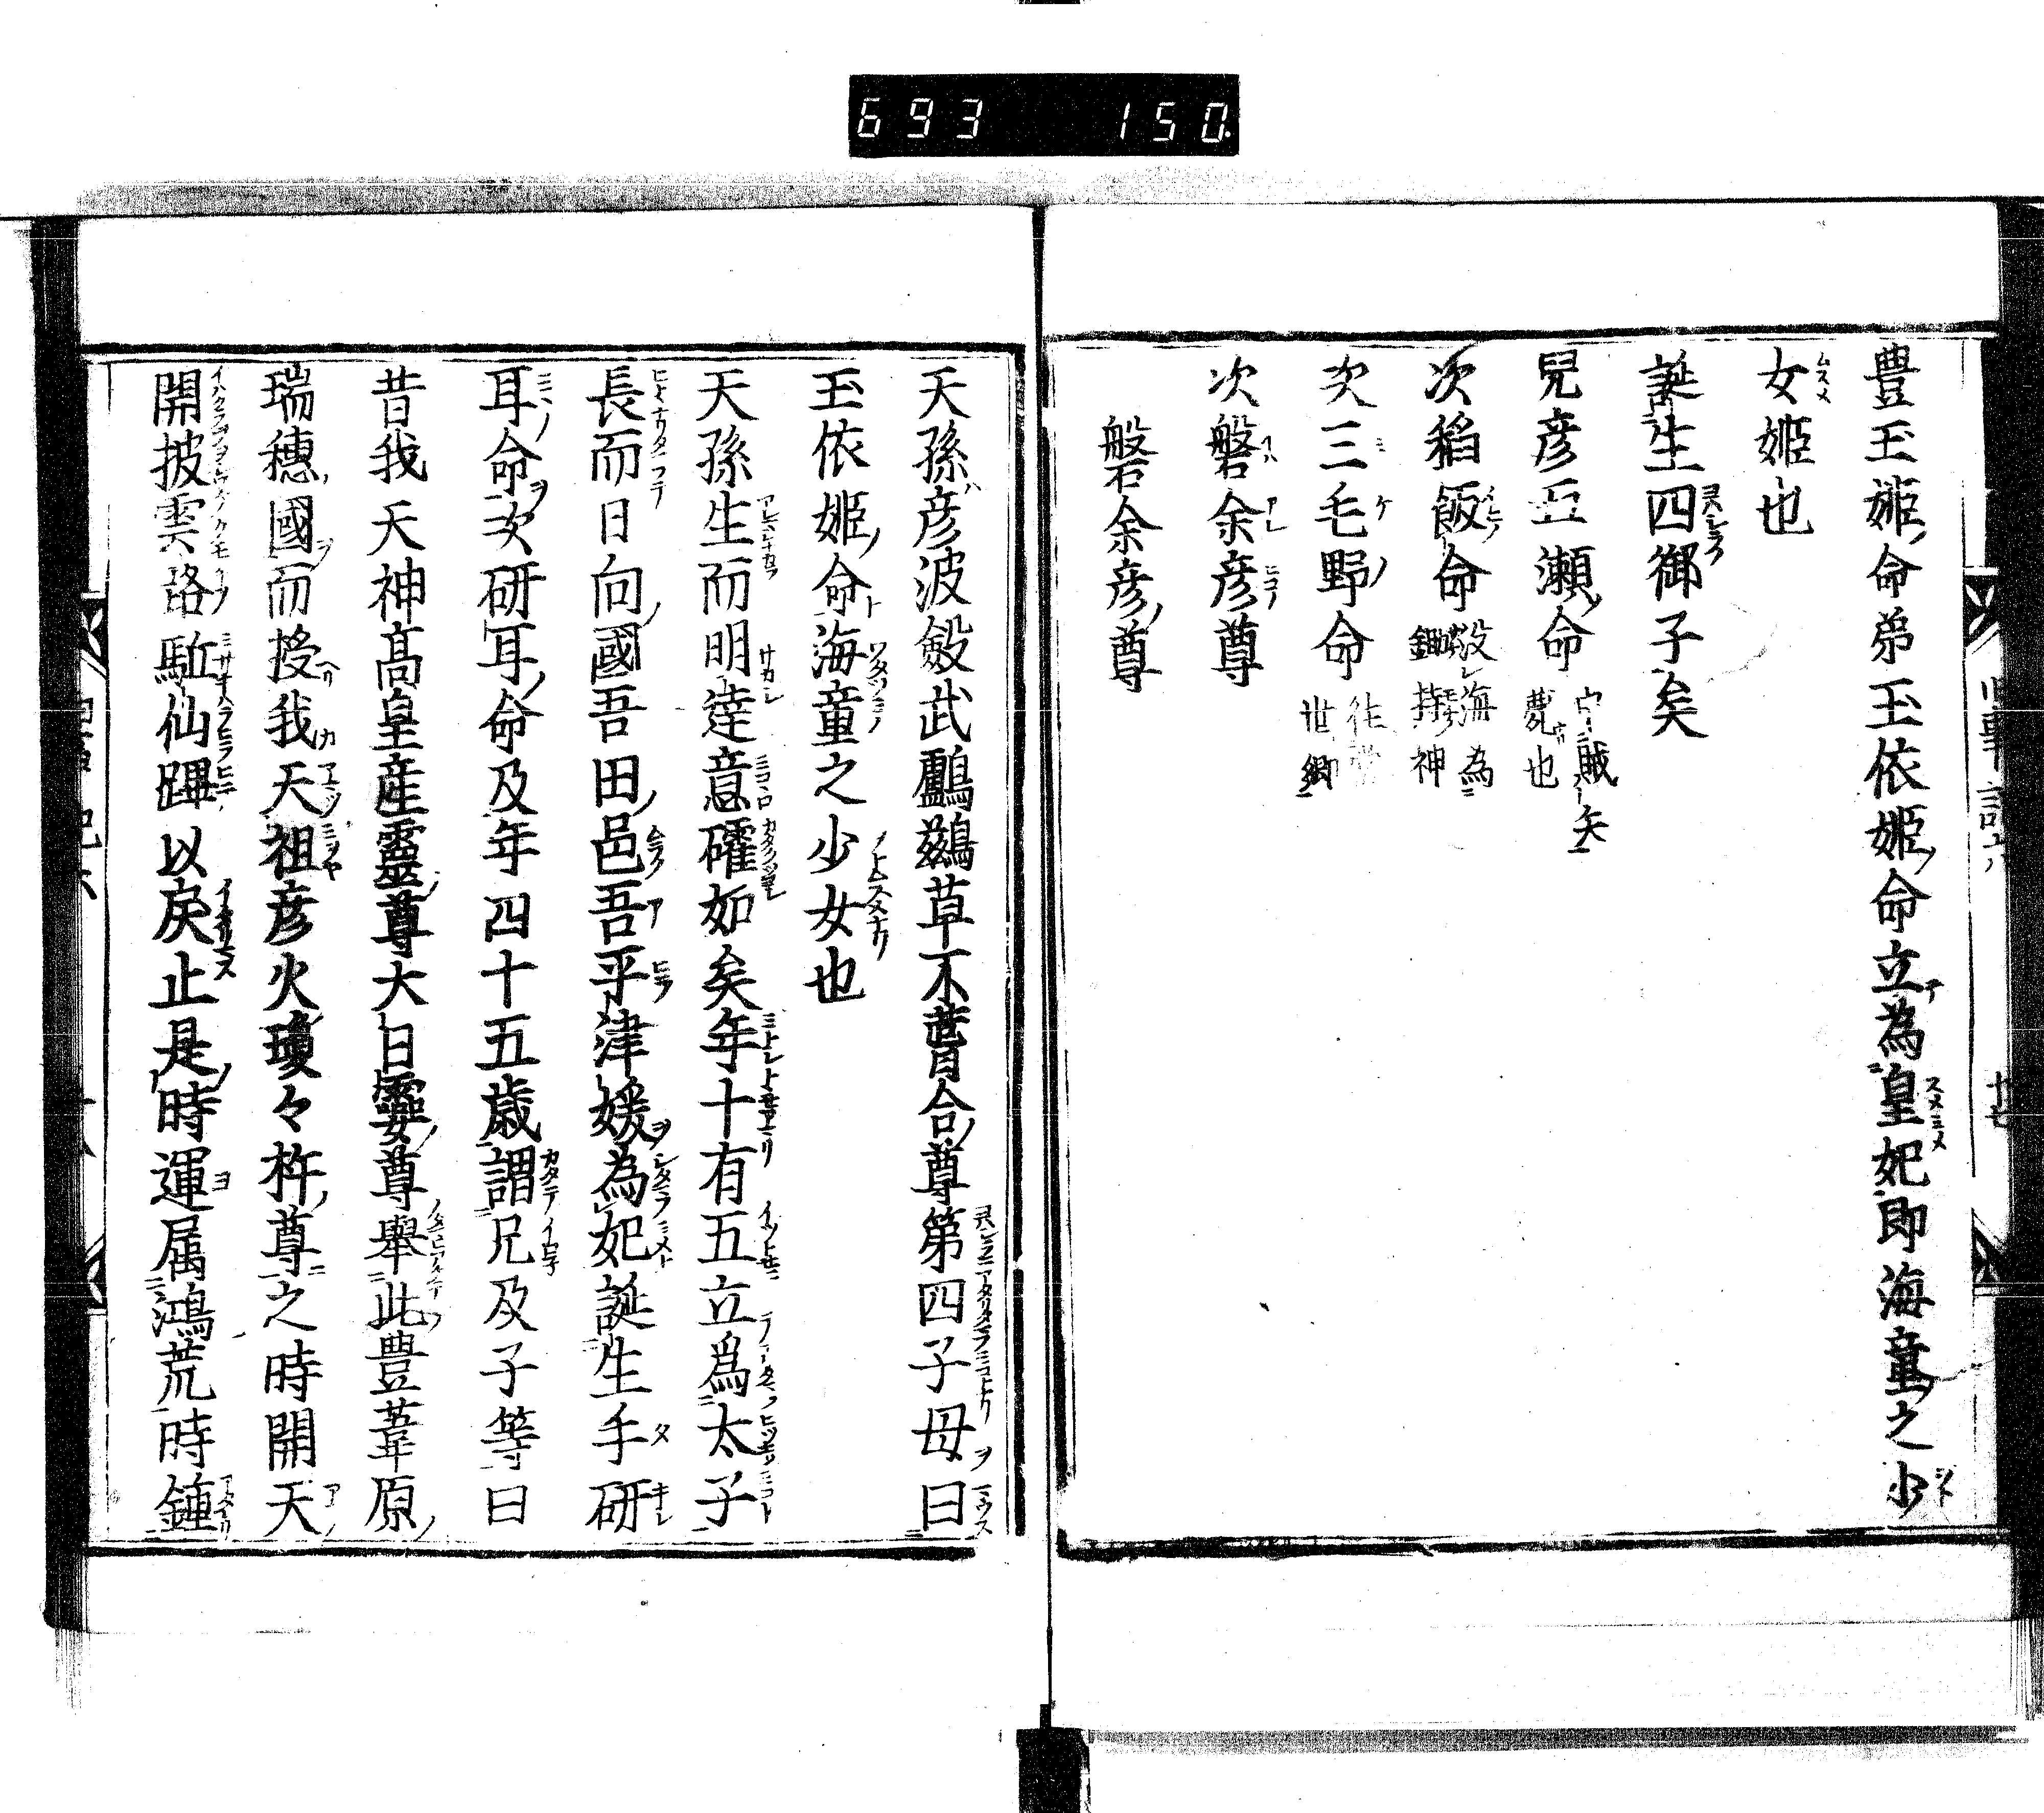 693 150
豊玉姫命弟玉依姫命立為皇妃即海童之少
女姫也
誕生四御子矣
兒彦五瀬命 中賊矢薨也
次稻飯命 没海為鋤持神
次三毛野命 往常世郷
次磐余彦尊
磐余彦尊
天孫彦波瀲武鸕鷀草不葺合尊第四子母曰
玉依姫命海童之少女也
天孫生而明達意確如矣年十有五立爲太子
長而日向國吾田邑吾平津媛為妃誕生手研
耳命次研耳命及年四十五歳謂兄及子等曰
昔我天神髙皇産靈尊大日孁尊舉此豊葦原
瑞穗國而授我天祖彦火瓊々杵尊之時開天
開披雲路駈仙蹕以戻止是時運屬鴻荒時鍾